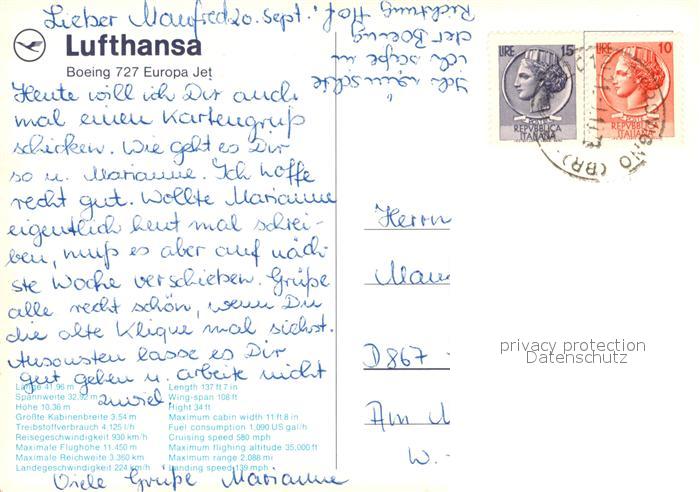 Lieber Manfred 20. Sept.
Lufthansa
Boeing 727 Europa Jet
Heute will ich Dir auch
mal einen Kartengruß
schicken. Wie geht es Dir
so u. Marianne. Ich hoffe
recht gut. Wollte Marianne
eigentlich heut mal schrei-
ben, muß es aber auf näch-
ste Woche verschieben. Grüße
alle recht schön, wenn Du
die alte Klique mal siehst.
Ansonsten lasse es Dir
gut gehen u. arbeite nicht
zuviel.
Länge 41,96 m
Spannweite 32,92 m
Höhe 10,36 m
Größte Kabinenbreite 3,54 m
Treibstoffverbrauch 4.125 l/h
Reisegeschwindigkeit 930 km/h
Maximale Flughöhe 11.450 m
Maximale Reichweite 3.360 km
Landegeschwindigkeit 224 km/h
Length 137 ft 7 in
Wing-span 108 ft
Height 34 ft
Maximum cabin width 11 ft 8 in
Fuel consumption 1,090 US gal/h
Cruising speed 580 mph
Maximum flighing altitude 35,000 ft
Maximum range 2.088 mi
Landing speed 139 mph
Viele Grüße Marianne
Ich wünschte
ich säße in
der Boeing
Richtung Hof.
LIRE 15
POSTE
REPVBBLICA
ITALIANA
LIRE 10
POSTE
REPVBBLICA
ITALIANA
(BR)
Herrn
Man
D867
Am
W.
privacy protection
Datenschutz